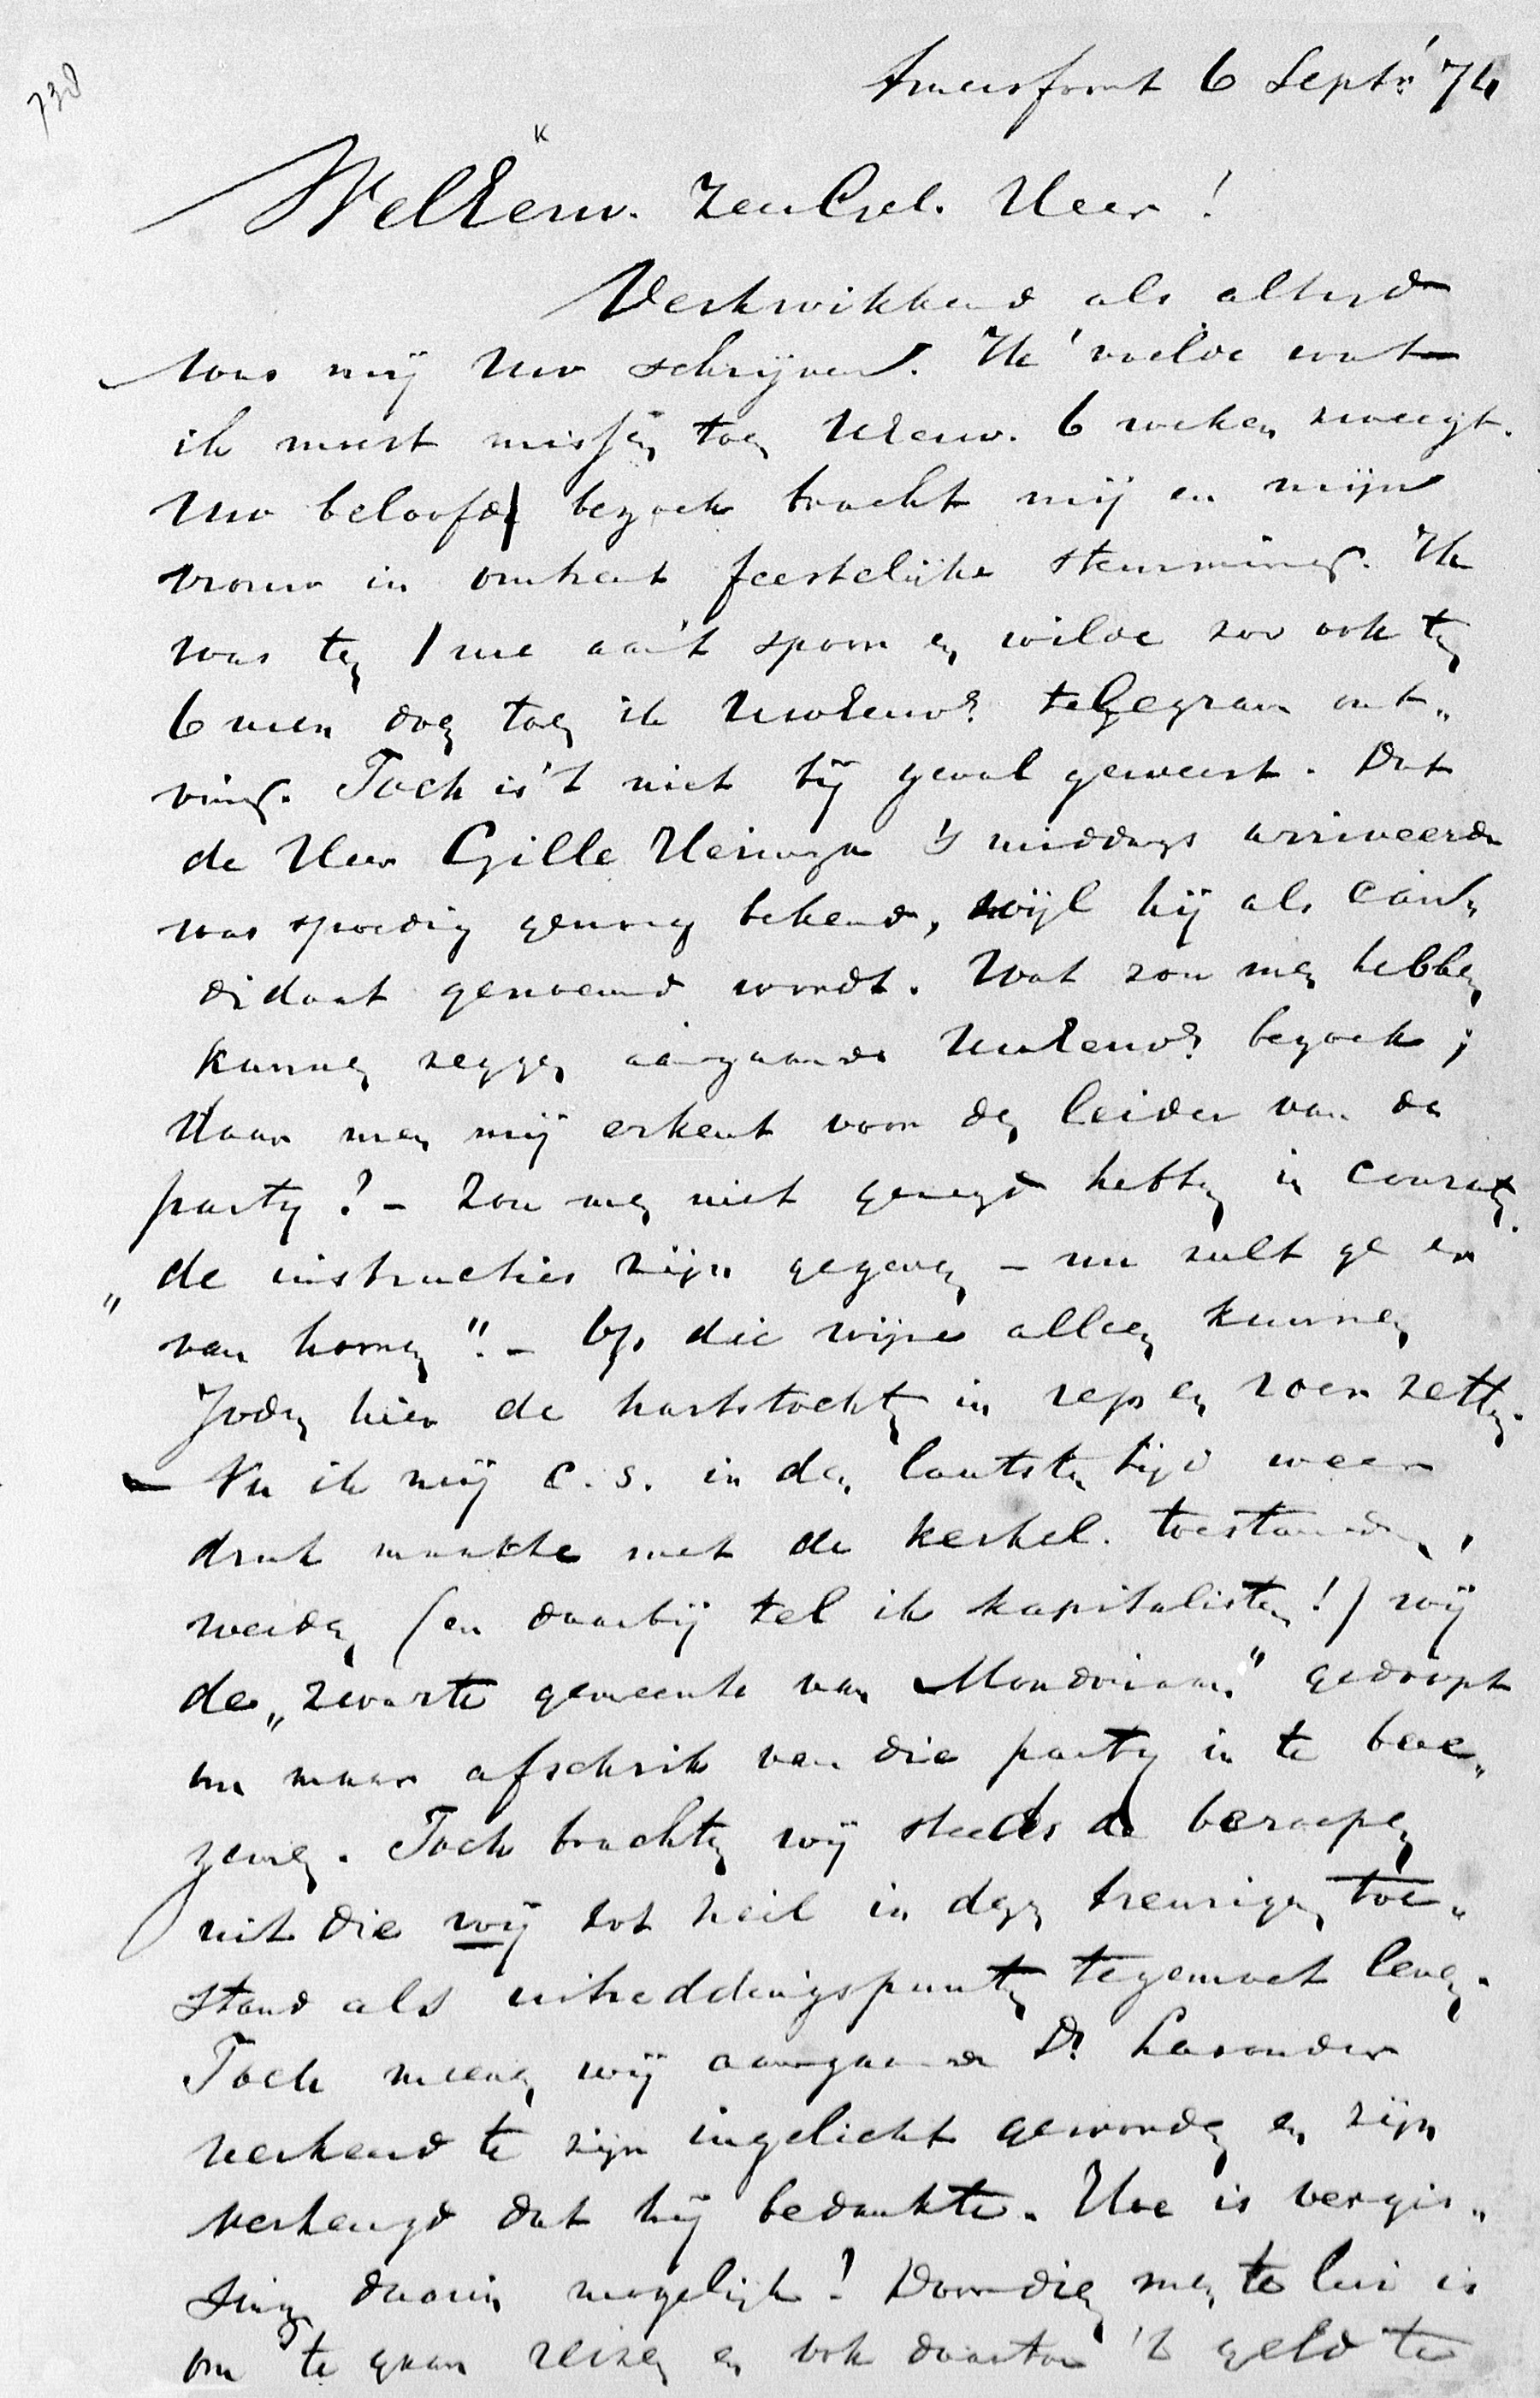 738
Amersfoort 6 Septr '74
WelEerw. ZeerGel. Heer!
Verkwikkend als altijd
was mij Uw schrijven. Ik voelde wat
ik moest missen toen UEerw. 6 weken zweegt.
Uw beloofd bezoek bracht mij en mijn
vrouw in omtrent feestelijke stemming. Ik
was ten 1 ure aan 't spoor en wilde zoo ook ten
6 uren doen toen ik UwEerws telegram ont„
ving. Toch is 't niet bij geval geweest. Dat
de Heer Gille Heringa 's middags arriveerde
was spoedig genoeg bekend, wijl hij als can„
didaat genoemd wordt. Wat zou men hebben
kunnen zeggen aangaande UwEerws bezoek;
daar men mij erkent voor den leider van de
partij? – Zou men niet gezegd hebben in couranten
„de instructies zijn gegeven – nu zult ge er
van hooren". – Op die wijze alleen kunnen
Joden hier de hartstochten in rep en roer zetten.
– Nu ik mij c.s. in den laatsten tijd weer
druk maakte met de kerkel. toestanden,
werden (en daarbij tel ik kapitalisten!) wij
de „zwarte gemeente van Mondriaan" gedoopt
om maar afschrik van die partij in te boe„
zemen. Toch brachten wij steeds de beroepen
uit die wij tot heil in dezen treurigen toe„
stand als uitreddingspunten tegemoet
Toch meenen wij aangaande Ds Lasonder
verkeerd te zijn ingelicht geworden en zijn
verheugd dat hij bedankte. Hoe is vergis„
sing daarin mogelijk! Doordien men te lui is
om te gaan reizen en ook daartoe 't geld te